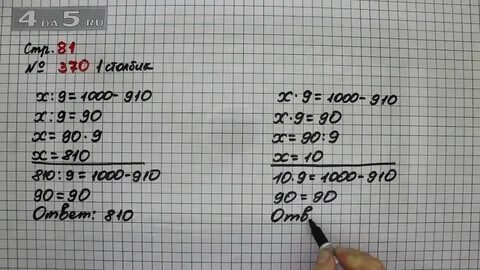 4 DA 5.RU
Стр. 81
№ 370 1 столбик
x : 9 = 1000 - 910
x : 9 = 90
x = 90 · 9
x = 810
810 : 9 = 1000 - 910
90 = 90
Ответ: 810
x · 9 = 1000 - 910
x · 9 = 90
x = 90 : 9
x = 10
10 · 9 = 1000 - 910
90 = 90
Отв